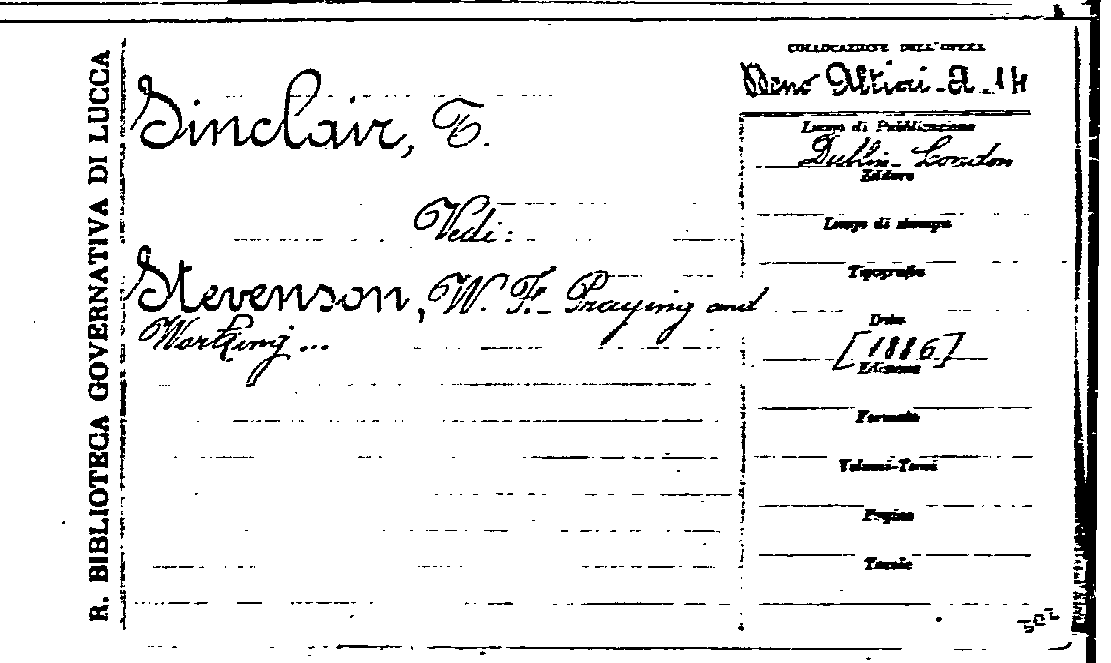 R. BIBLIOTECA GOVERNATIVA DI LUCCA
Sinclair, T.
Vedi:
Stevenson, W. F. - Praying and
Working...
COLLOCAZIONE DELL'OPERA
Altieri - A - 14
Luogo di Pubblicazione
Dublin - London
Editore
Luogo di stampa
Tipografia
Data
[1886]
Edizione
Formato
Volumi-Tomi
Pagine
Tavole
502